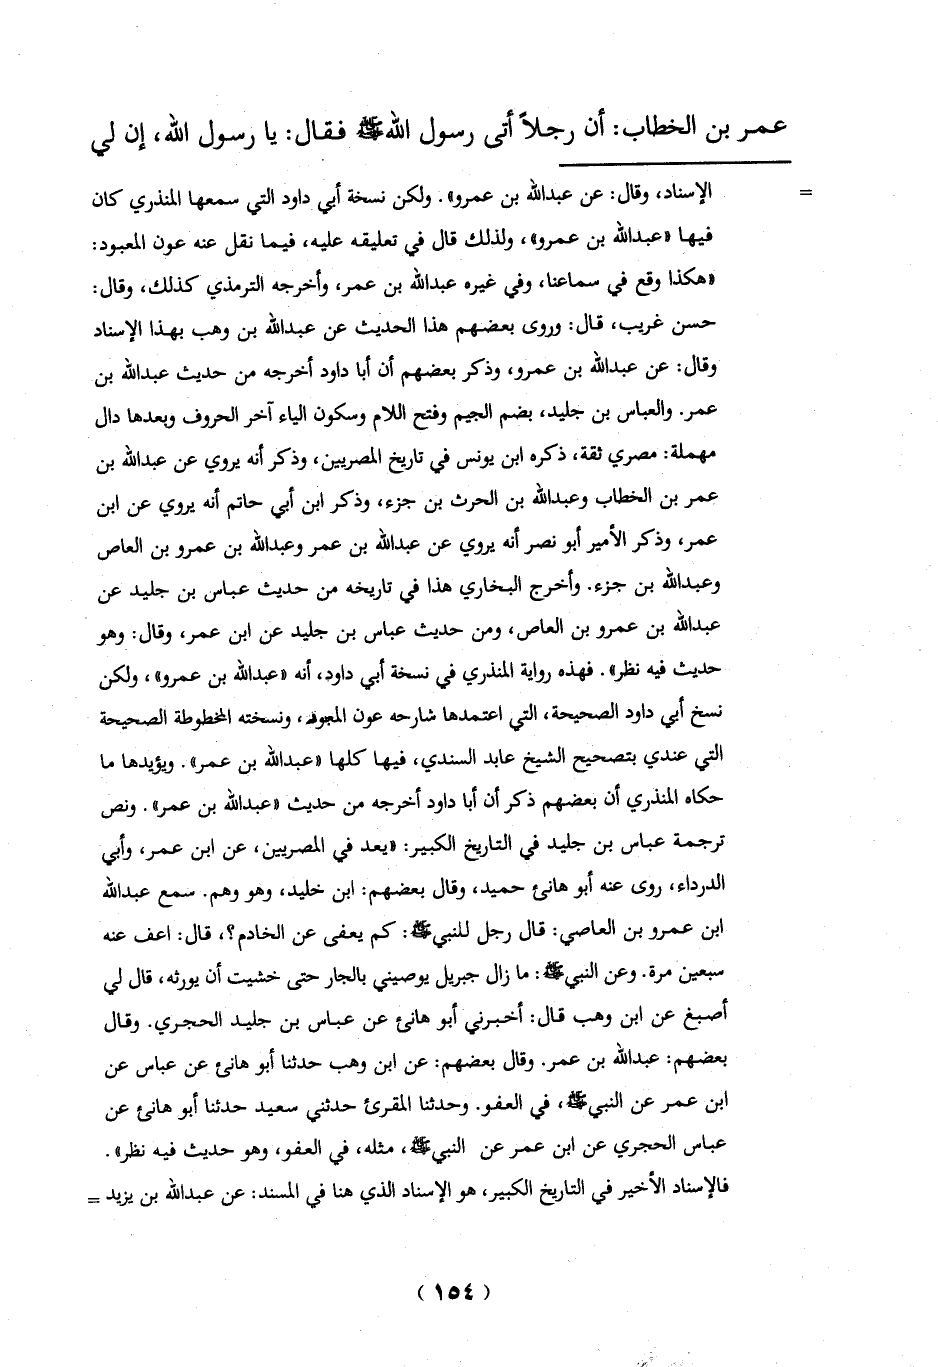 عمر بن الخطاب: أن رجلاً أتى رسول الله ﷺ فقال: يا رسول الله، إن لي
= الإسناد، وقال: عن عبدالله بن عمرو». ولكن نسخة أبي داود التي سمعها المنذري كان
فيها «عبدالله بن عمرو»، ولذلك قال في تعليقه عليه، فيما نقل عنه عون المعبود:
«هكذا وقع في سماعنا، وفي غيره عبدالله بن عمر، وأخرجه الترمذي كذلك، وقال:
حسن غريب، قال: وروى بعضهم هذا الحديث عن عبدالله بن وهب بهذا الإسناد
وقال: عن عبدالله بن عمرو، وذكر بعضهم أن أبا داود أخرجه من حديث عبدالله بن
عمر. والعباس بن جليد، بضم الجيم وفتح اللام وسكون الياء آخر الحروف وبعدها دال
مهملة: مصري ثقة، ذكره ابن يونس في تاريخ المصريين، وذكر أنه يروي عن عبدالله بن
عمر بن الخطاب وعبدالله بن الحرث بن جزء، وذكر ابن أبي حاتم أنه يروي عن ابن
عمر، وذكر الأمير أبو نصر أنه يروي عن عبدالله بن عمر وعبدالله بن عمرو بن العاص
وعبدالله بن جزء. وأخرج البخاري هذا في تاريخه من حديث عباس بن جليد عن
عبدالله بن عمرو بن العاص، ومن حديث عباس بن جليد عن ابن عمر، وقال: وهو
حديث فيه نظر». فهذه رواية المنذري في نسخة أبي داود، أنه «عبدالله بن عمرو»، ولكن
نسخ أبي داود الصحيحة، التي اعتمدها شارحه عون ونسخته المخطوطة الصحيحة
التي عندي بتصحيح الشيخ عابد السندي، فيها كلها «عبدالله بن عمر». ويؤيدها ما
حكاه المنذري أن بعضهم ذكر أن أبا داود أخرجه من حديث «عبدالله بن عمر». ونص
ترجمة عباس بن جليد في التاريخ الكبير: «يعد في المصريين، عن ابن عمر، وأبي
الدرداء، روى عنه أبو هانئ حميد، وقال بعضهم: ابن خليد، وهو وهم. سمع عبدالله
ابن عمرو بن العاصي: قال رجل للنبي ﷺ: كم يعفى عن الخادم؟، قال: اعف عنه
سبعين مرة. وعن النبي ﷺ: ما زال جبريل يوصيني بالجار حتى خشيت أن يورثه، قال لي
أصبغ عن ابن وهب قال: أخبرني أبو هانئ عن عباس بن جليد الحجري. وقال
بعضهم: عبدالله بن عمر. وقال بعضهم: عن ابن وهب حدثنا أبو هانئ عن عباس عن
ابن عمر عن النبي ﷺ، في العفو. وحدثنا المقرئ حدثني سعيد حدثنا أبو هانئ عن
عباس الحجري عن ابن عمر عن النبي ﷺ، مثله، في العفو، وهو حديث فيه نظر».
فالإسناد الأخير في التاريخ الكبير، هو الإسناد الذي هنا في المسند: عن عبدالله بن يزيد =
( ١٥٤ )